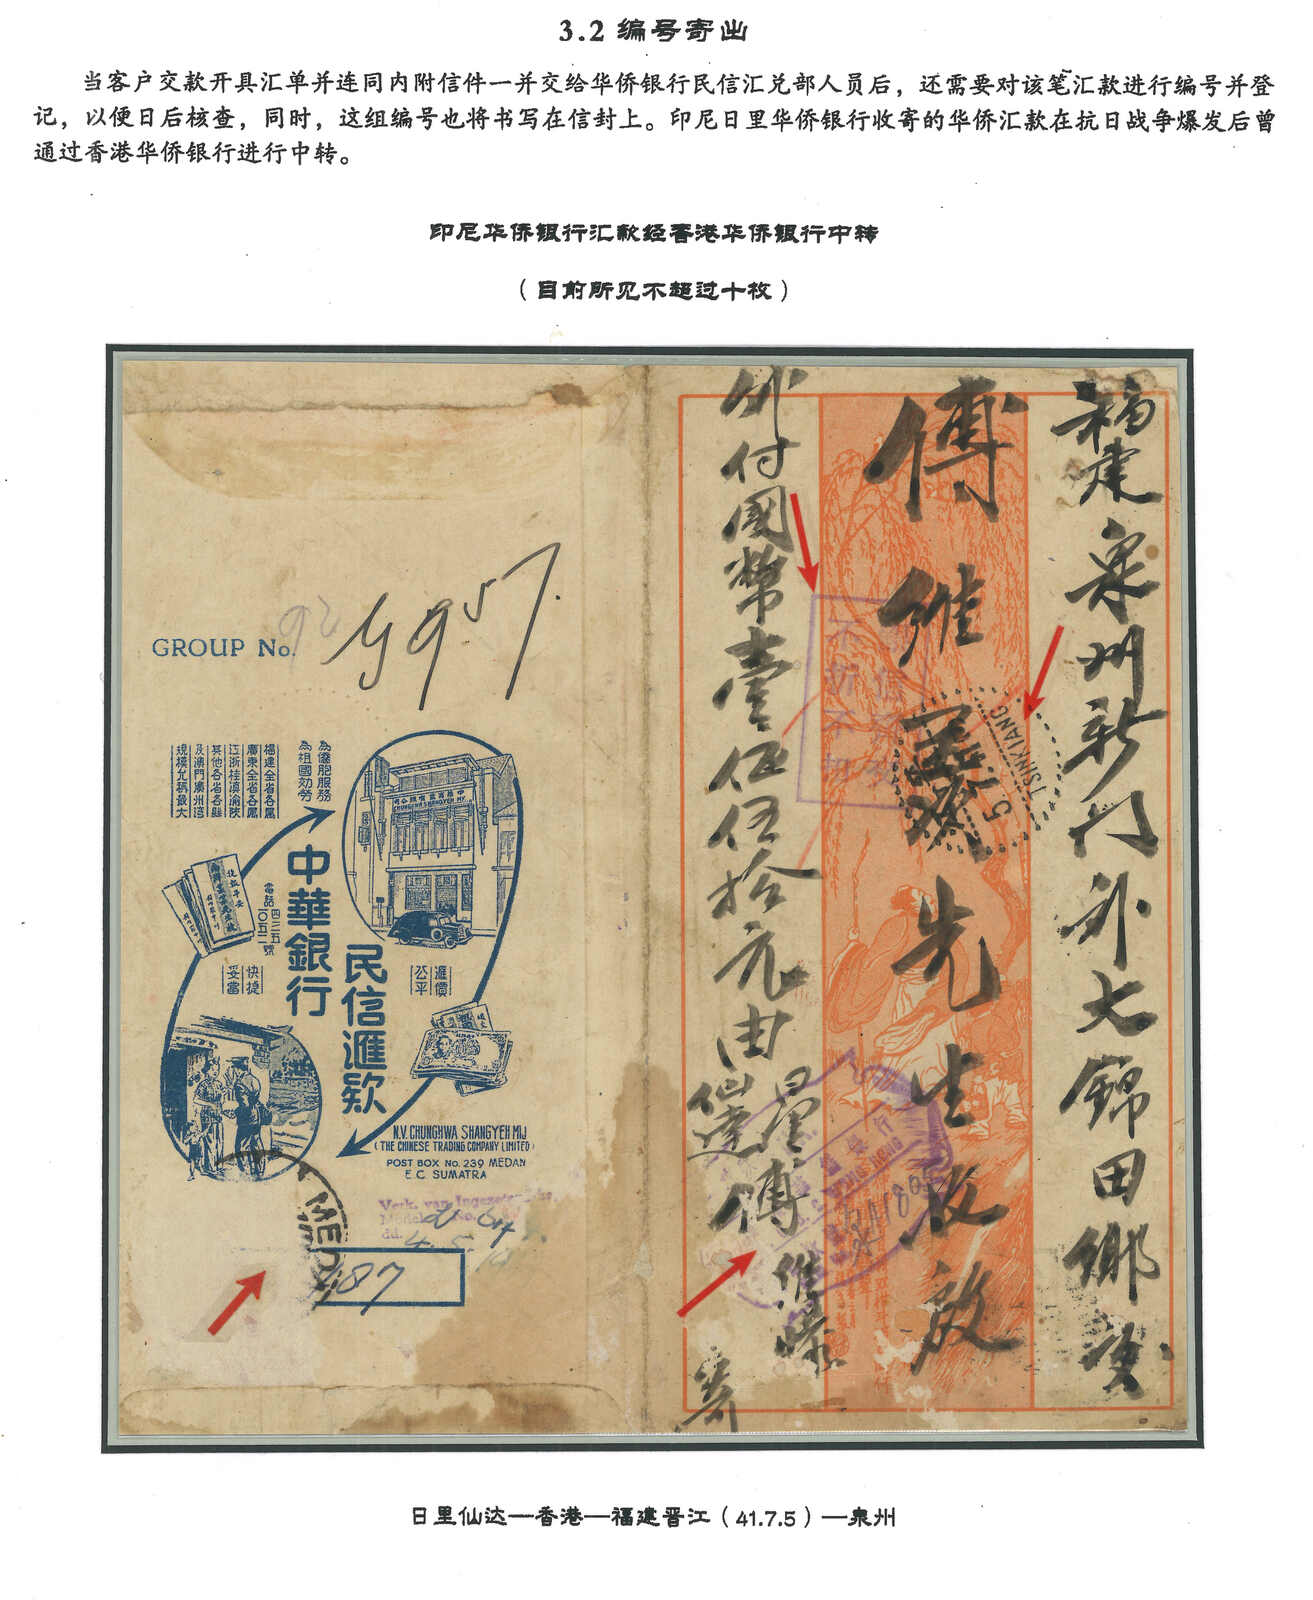 3.2 编号寄出
当客户交款开具汇单并连同内附信件一并交给华侨银行民信汇兑部人员后，还需要对该笔汇款进行编号并登
记，以便日后核查，同时，这组编号也将书写在信封上。印尼日里华侨银行收寄的华侨汇款在抗日战争爆发后曾
通过香港华侨银行进行中转。
印尼华侨银行汇款经香港华侨银行中转
（目前所见不超过十枚）
福建泉州新門外大錦田鄉交
傅維
先生收啟
外付國幣壹佰伍拾元由
日里
仙達
傅維
寄
TSINKIANG
5
GROUP No.
9957.
為僑胞服務
為祖國効勞
福建全省各属
廣東全省各属
江浙桂滇渝陝
其他各省各縣
及澳門廣州湾
規模允稱最大
中華商業有限公司
CHUNGHWA SHANGYEH MIJ
中華銀行
電話 四三五號
一〇五二
民信滙欵
快捷
妥當
滙價
公平
N.V. CHUNGHWA SHANGYEH MIJ
(THE CHINESE TRADING COMPANY LIMITED)
POST BOX No. 239 MEDAN
E.C. SUMATRA
Verk. van Ingezetenschap
dd.
MED
187
日里仙达—香港—福建晋江（41.7.5）—泉州